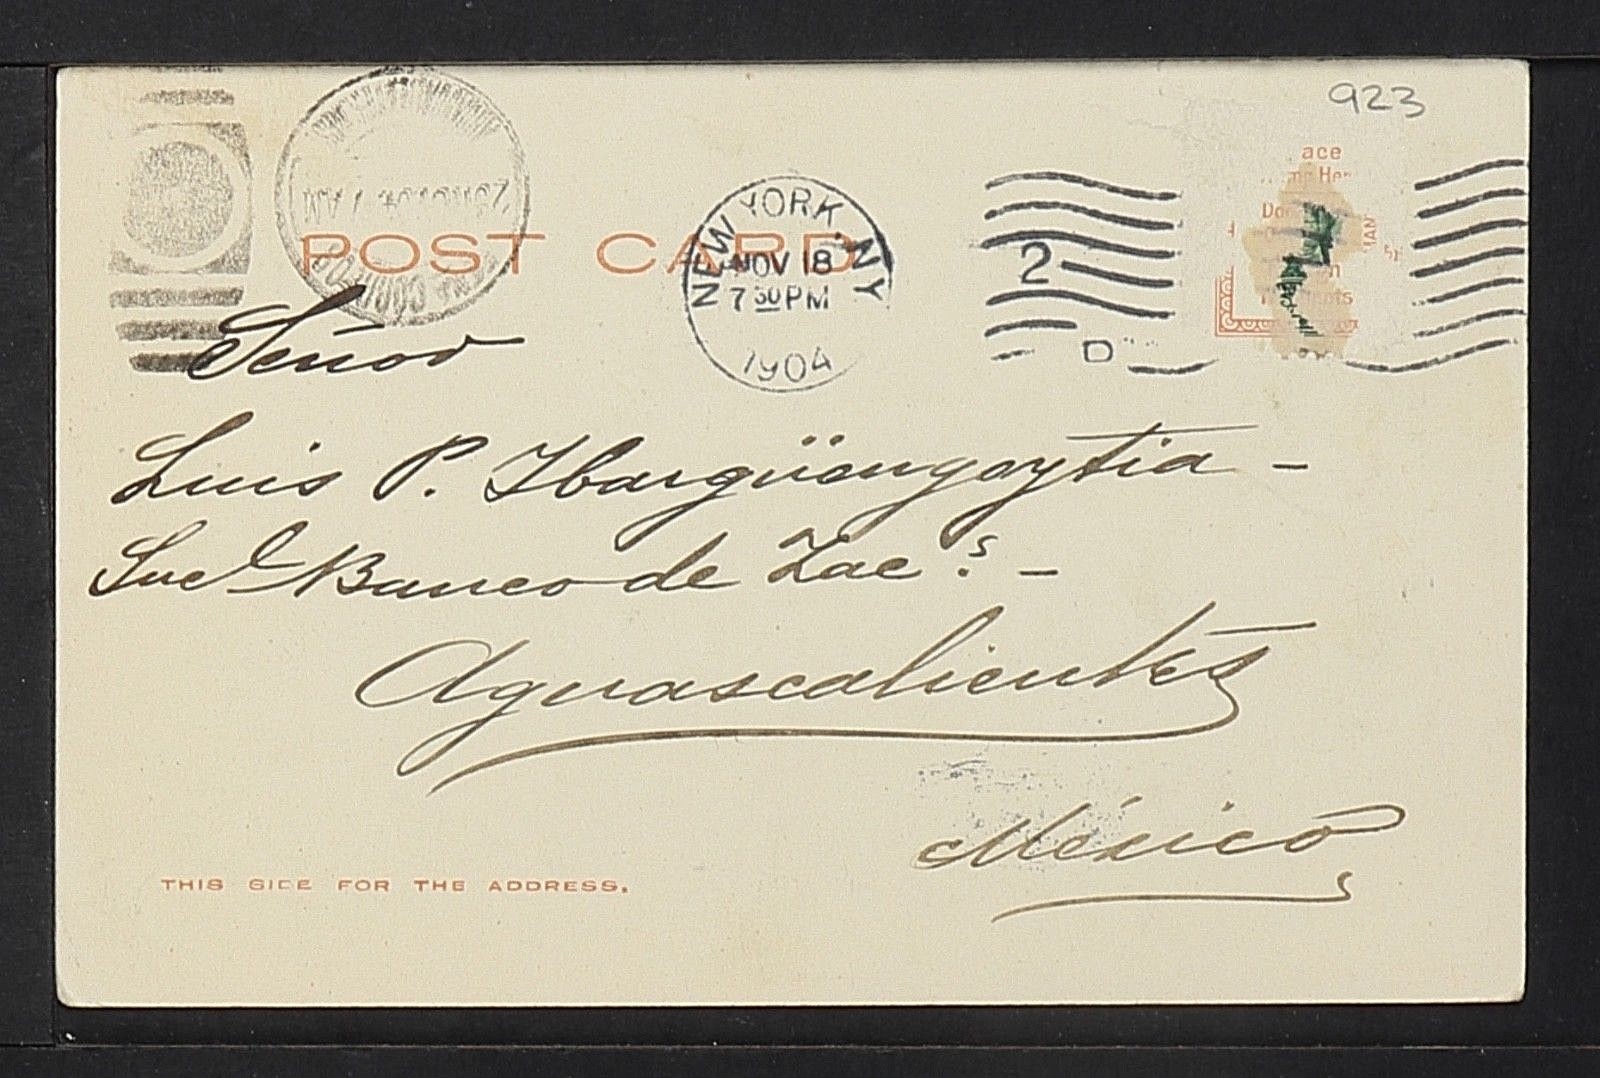 923
POST CARD
NEW YORK, NY
NOV 18
7 30 PM
1904
2
D
ace
Señor
Luis P. Ibargüengoytia -
Sucl Banco de Zacs. -
Aguascalientes
México
THIS SIDE FOR THE ADDRESS.